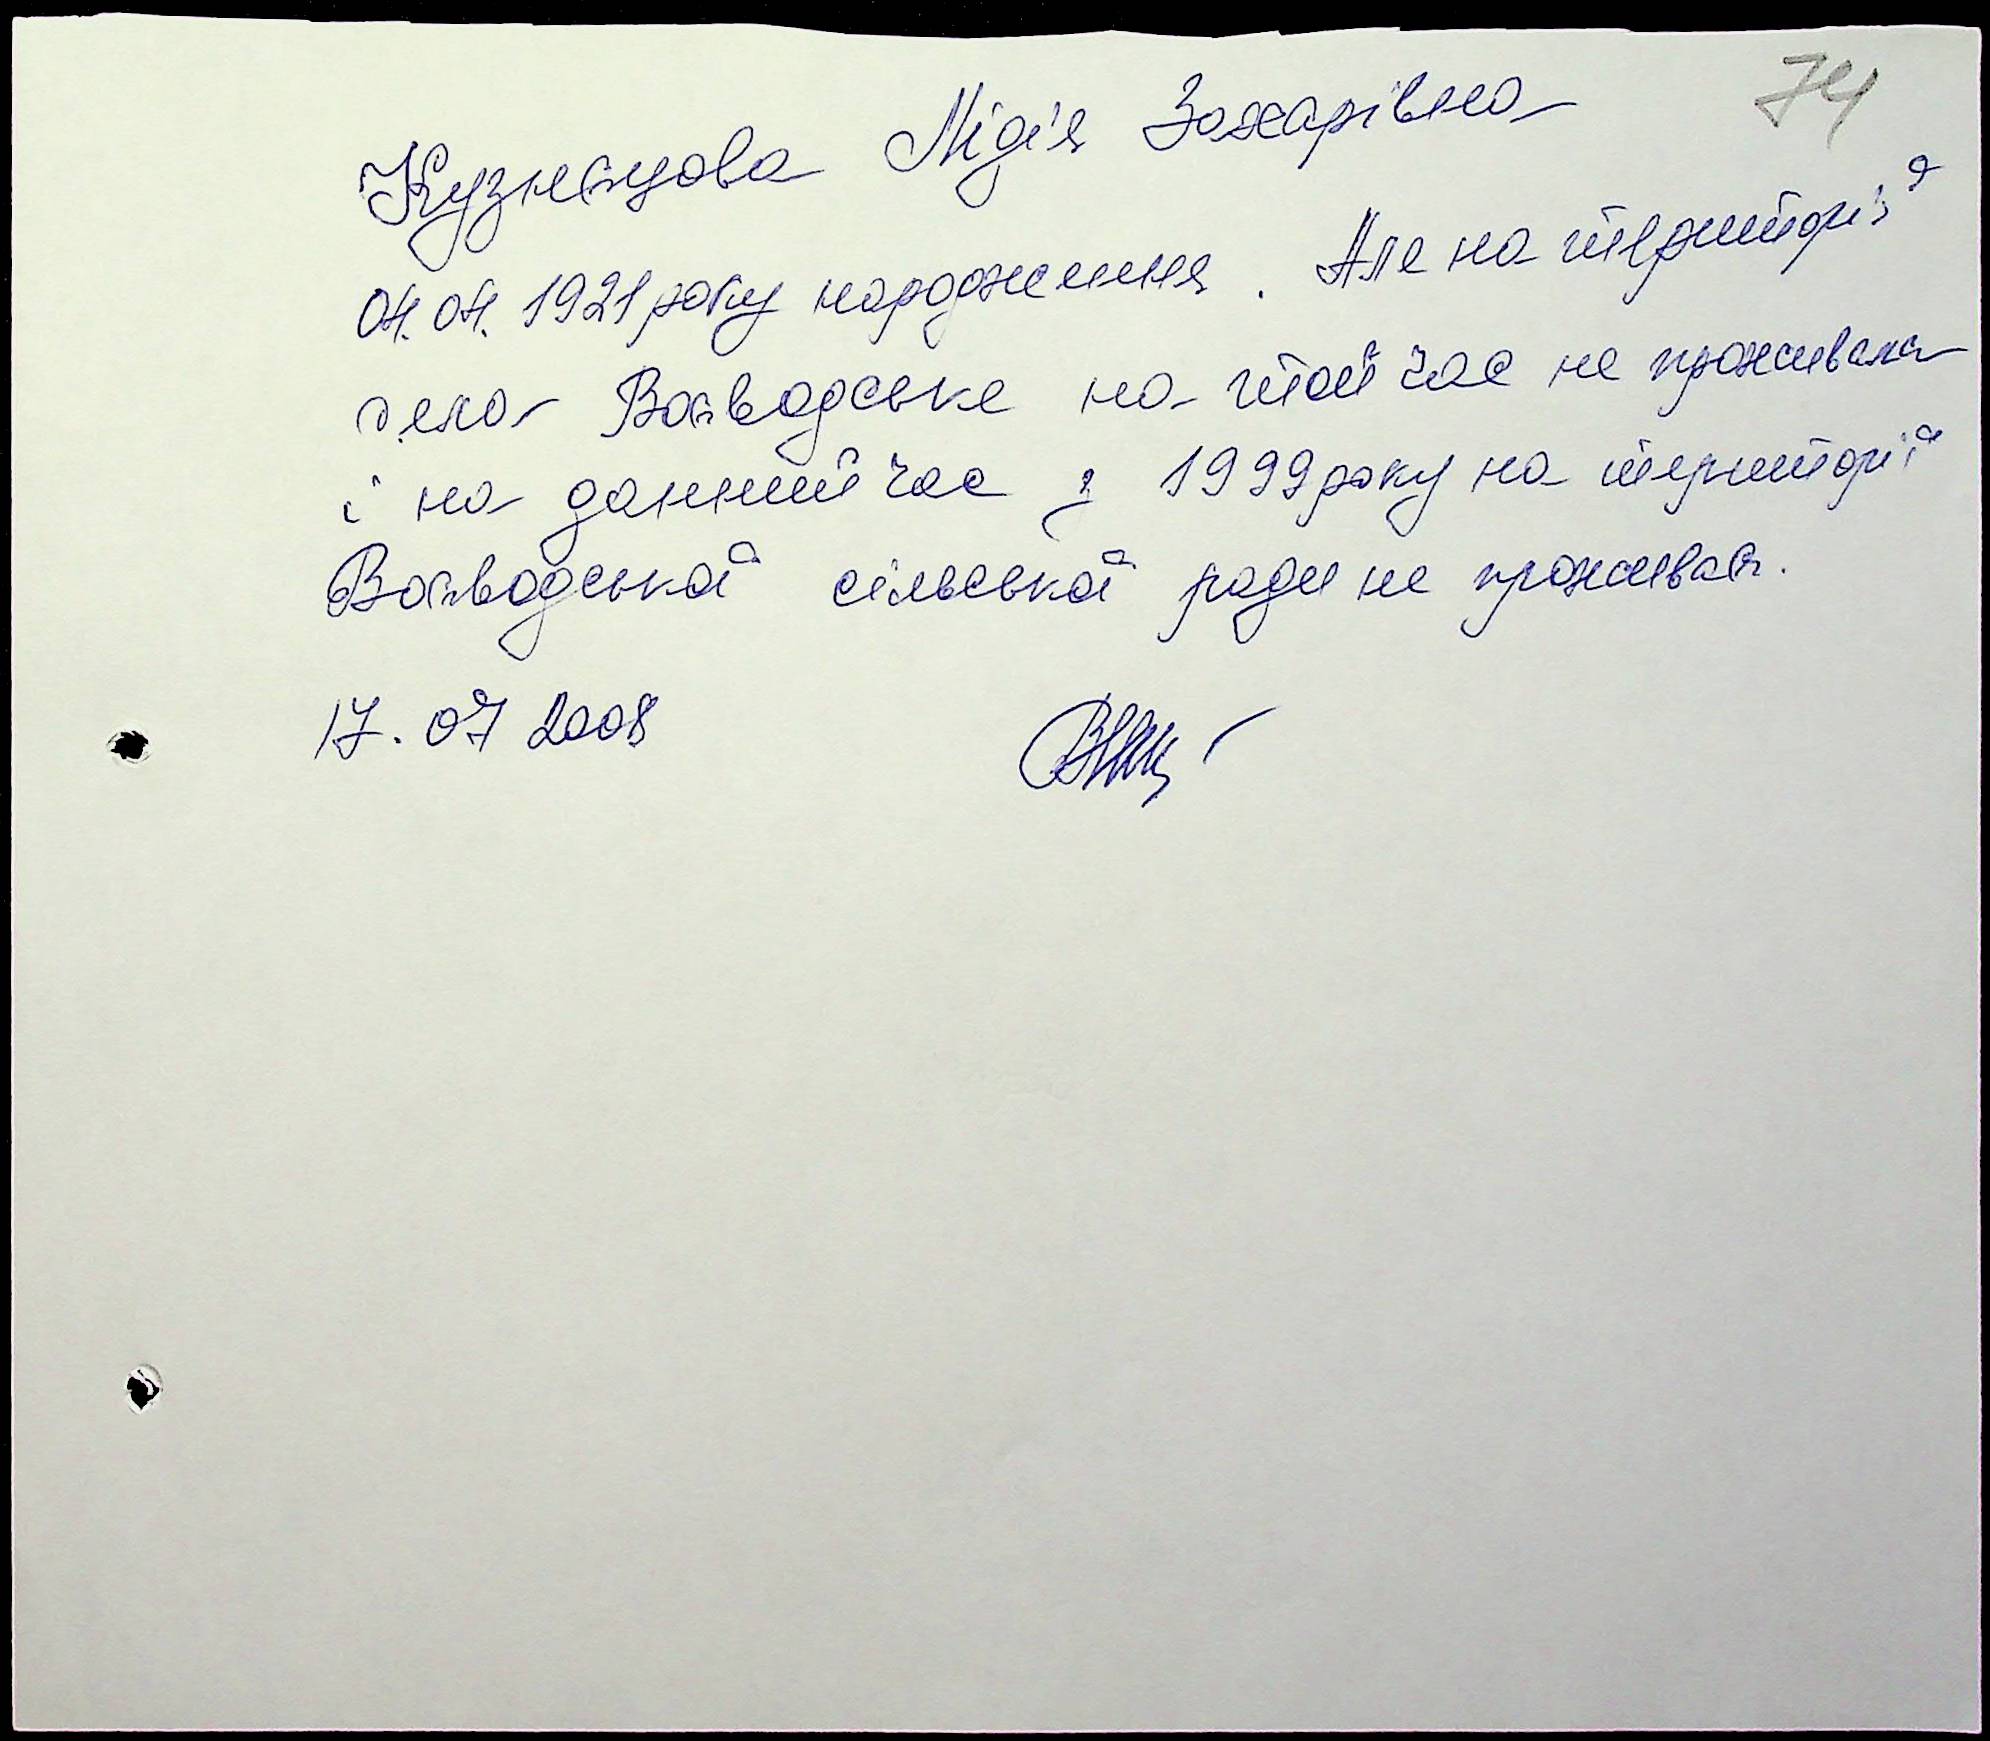 74
Кузнєцова Лідія Захарівна
04.04.1921 року народження. Але на території
села Воєводське на той час не проживала
і на данний час з 1999 року на території
Воєводської сільської ради не проживає.
17.07 2008